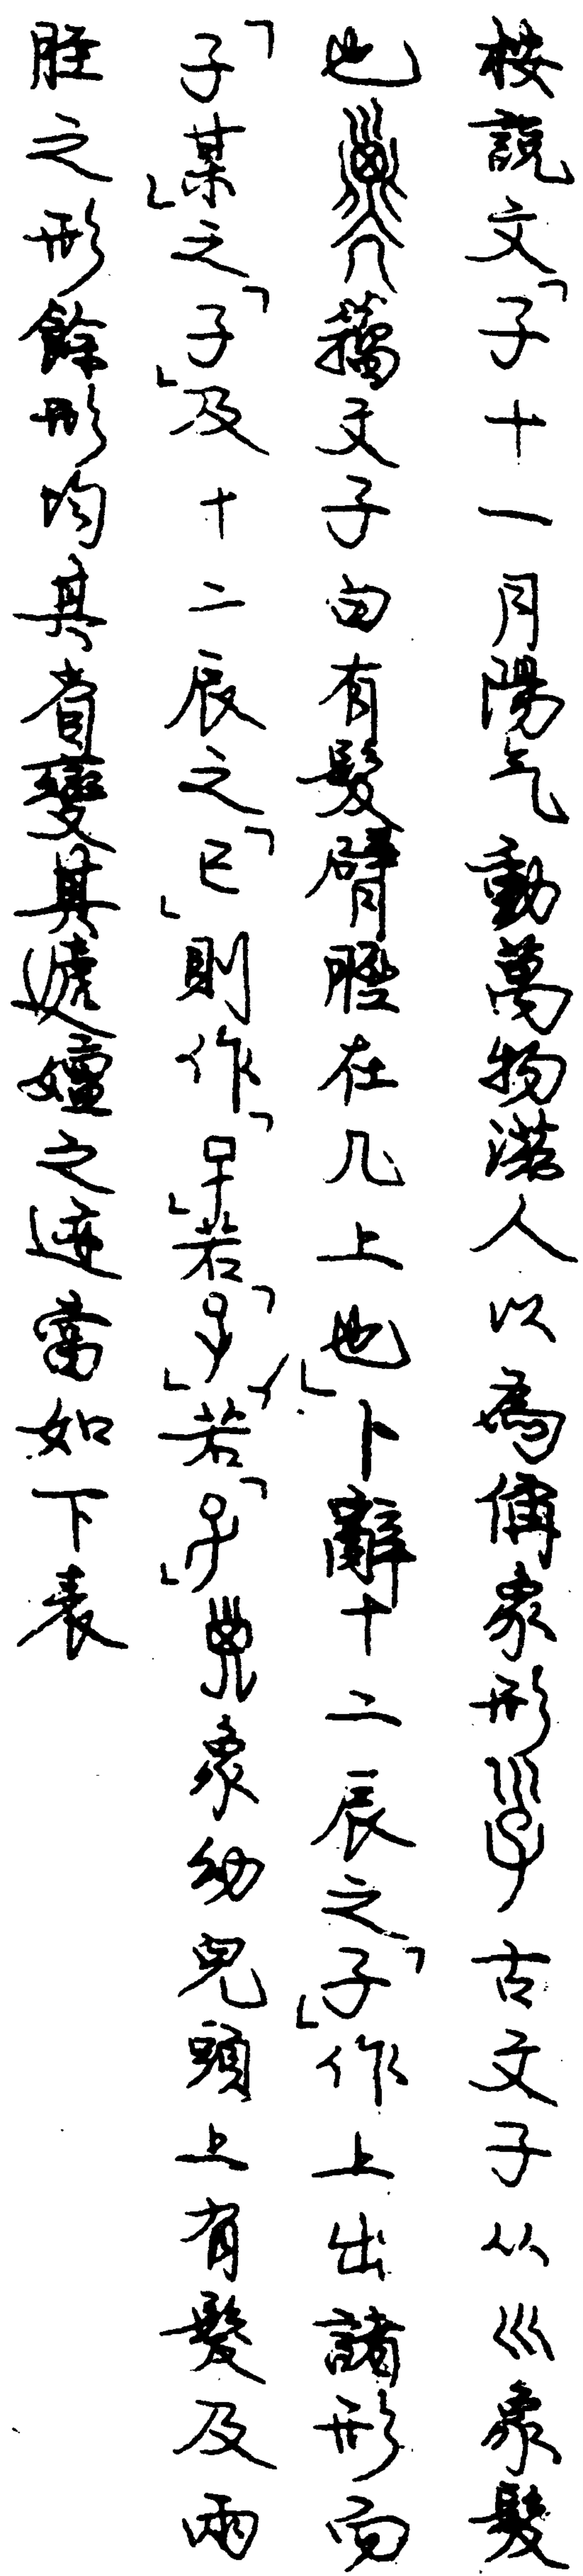 桉說文「子十一月陽气動萬物滋人以為偁象形古文子从巛象髮
也籒文子囟有髮臂脛在几上也」卜辭十二辰之「子」作上出諸形而
「子某」之「子」及十二辰之「巳」則作「」若「」若「」象幼兒頭上有髮及兩
脛之形餘形均其省變其遞嬗之迹當如下表